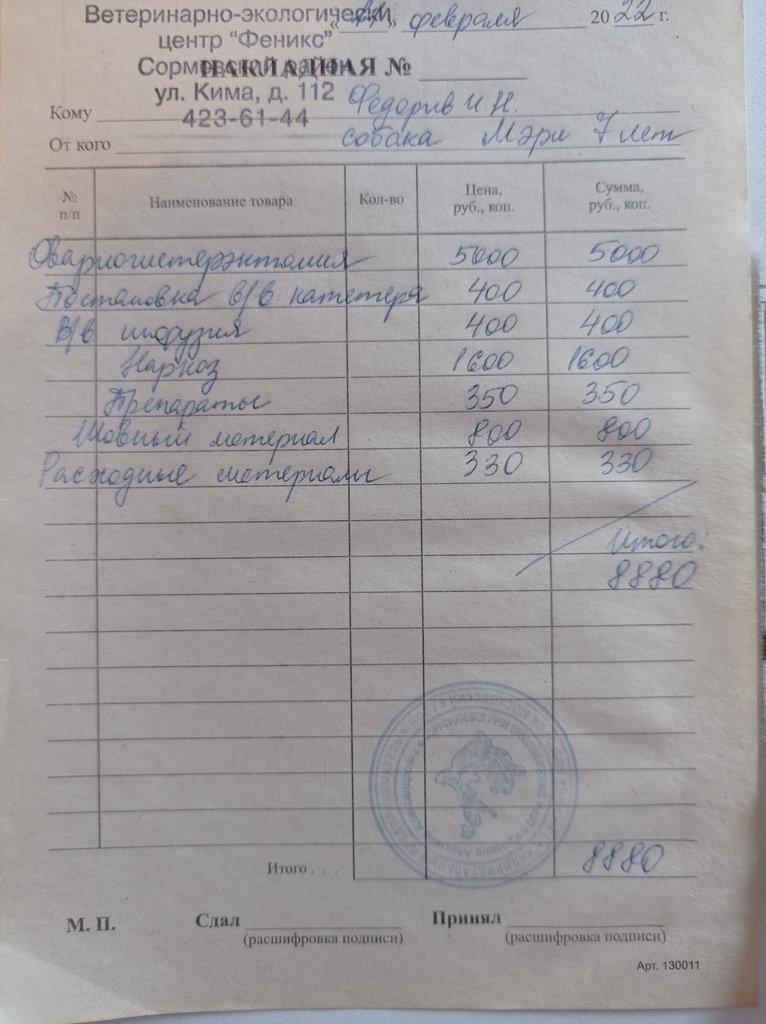 Ветеринарно-экологически
центр "Феникс"
Сормовский район
ул. Кима, д. 112
423-61-44
« » февраля 2022 г.
НАКЛАДНАЯ №
Кому Федорив И.Н.
От кого собака Мэри 7 лет
№ п/п Наименование товара Кол-во Цена, руб., коп. Сумма, руб., коп.
Овариогистерэктомия 5000 5000
Постановка в/в катетера 400 400
В/в инфузия 400 400
Наркоз 1600 1600
Препараты 350 350
Шовный материал 800 800
Расходные материалы 330 330
Итого:
8880
Итого . . . 8880
М. П. Сдал Принял
(расшифровка подписи) (расшифровка подписи)
Арт. 130011